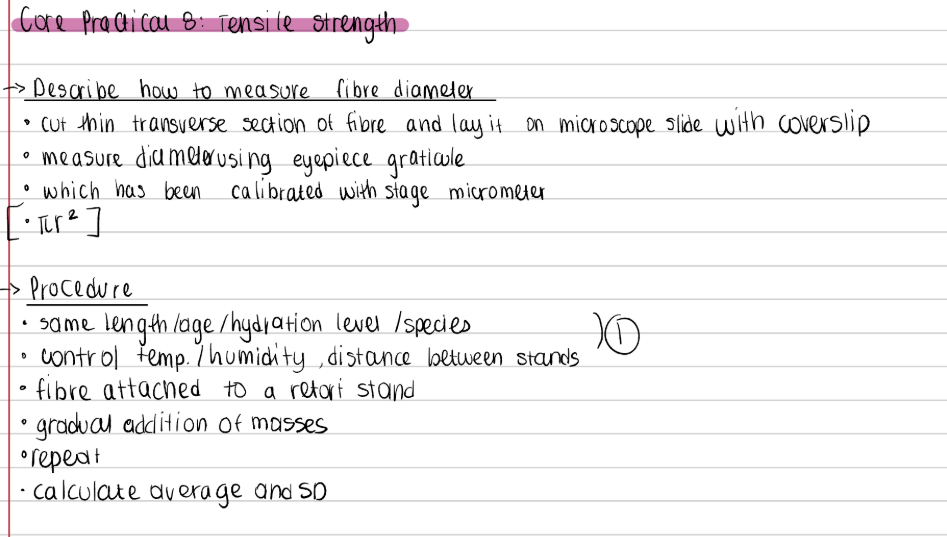 Core Practical 8: Tensile strength
→ Describe how to measure fibre diameter
• cut thin transverse section of fibre and lay it on microscope slide with coverslip
• measure diameter using eyepiece graticule
• which has been calibrated with stage micrometer
[• πr²]
→ Procedure
• same length/age/hydration level/species
• control temp./humidity, distance between stands ) ①
• fibre attached to a retort stand
• gradual addition of masses
• repeat
• calculate average and SD